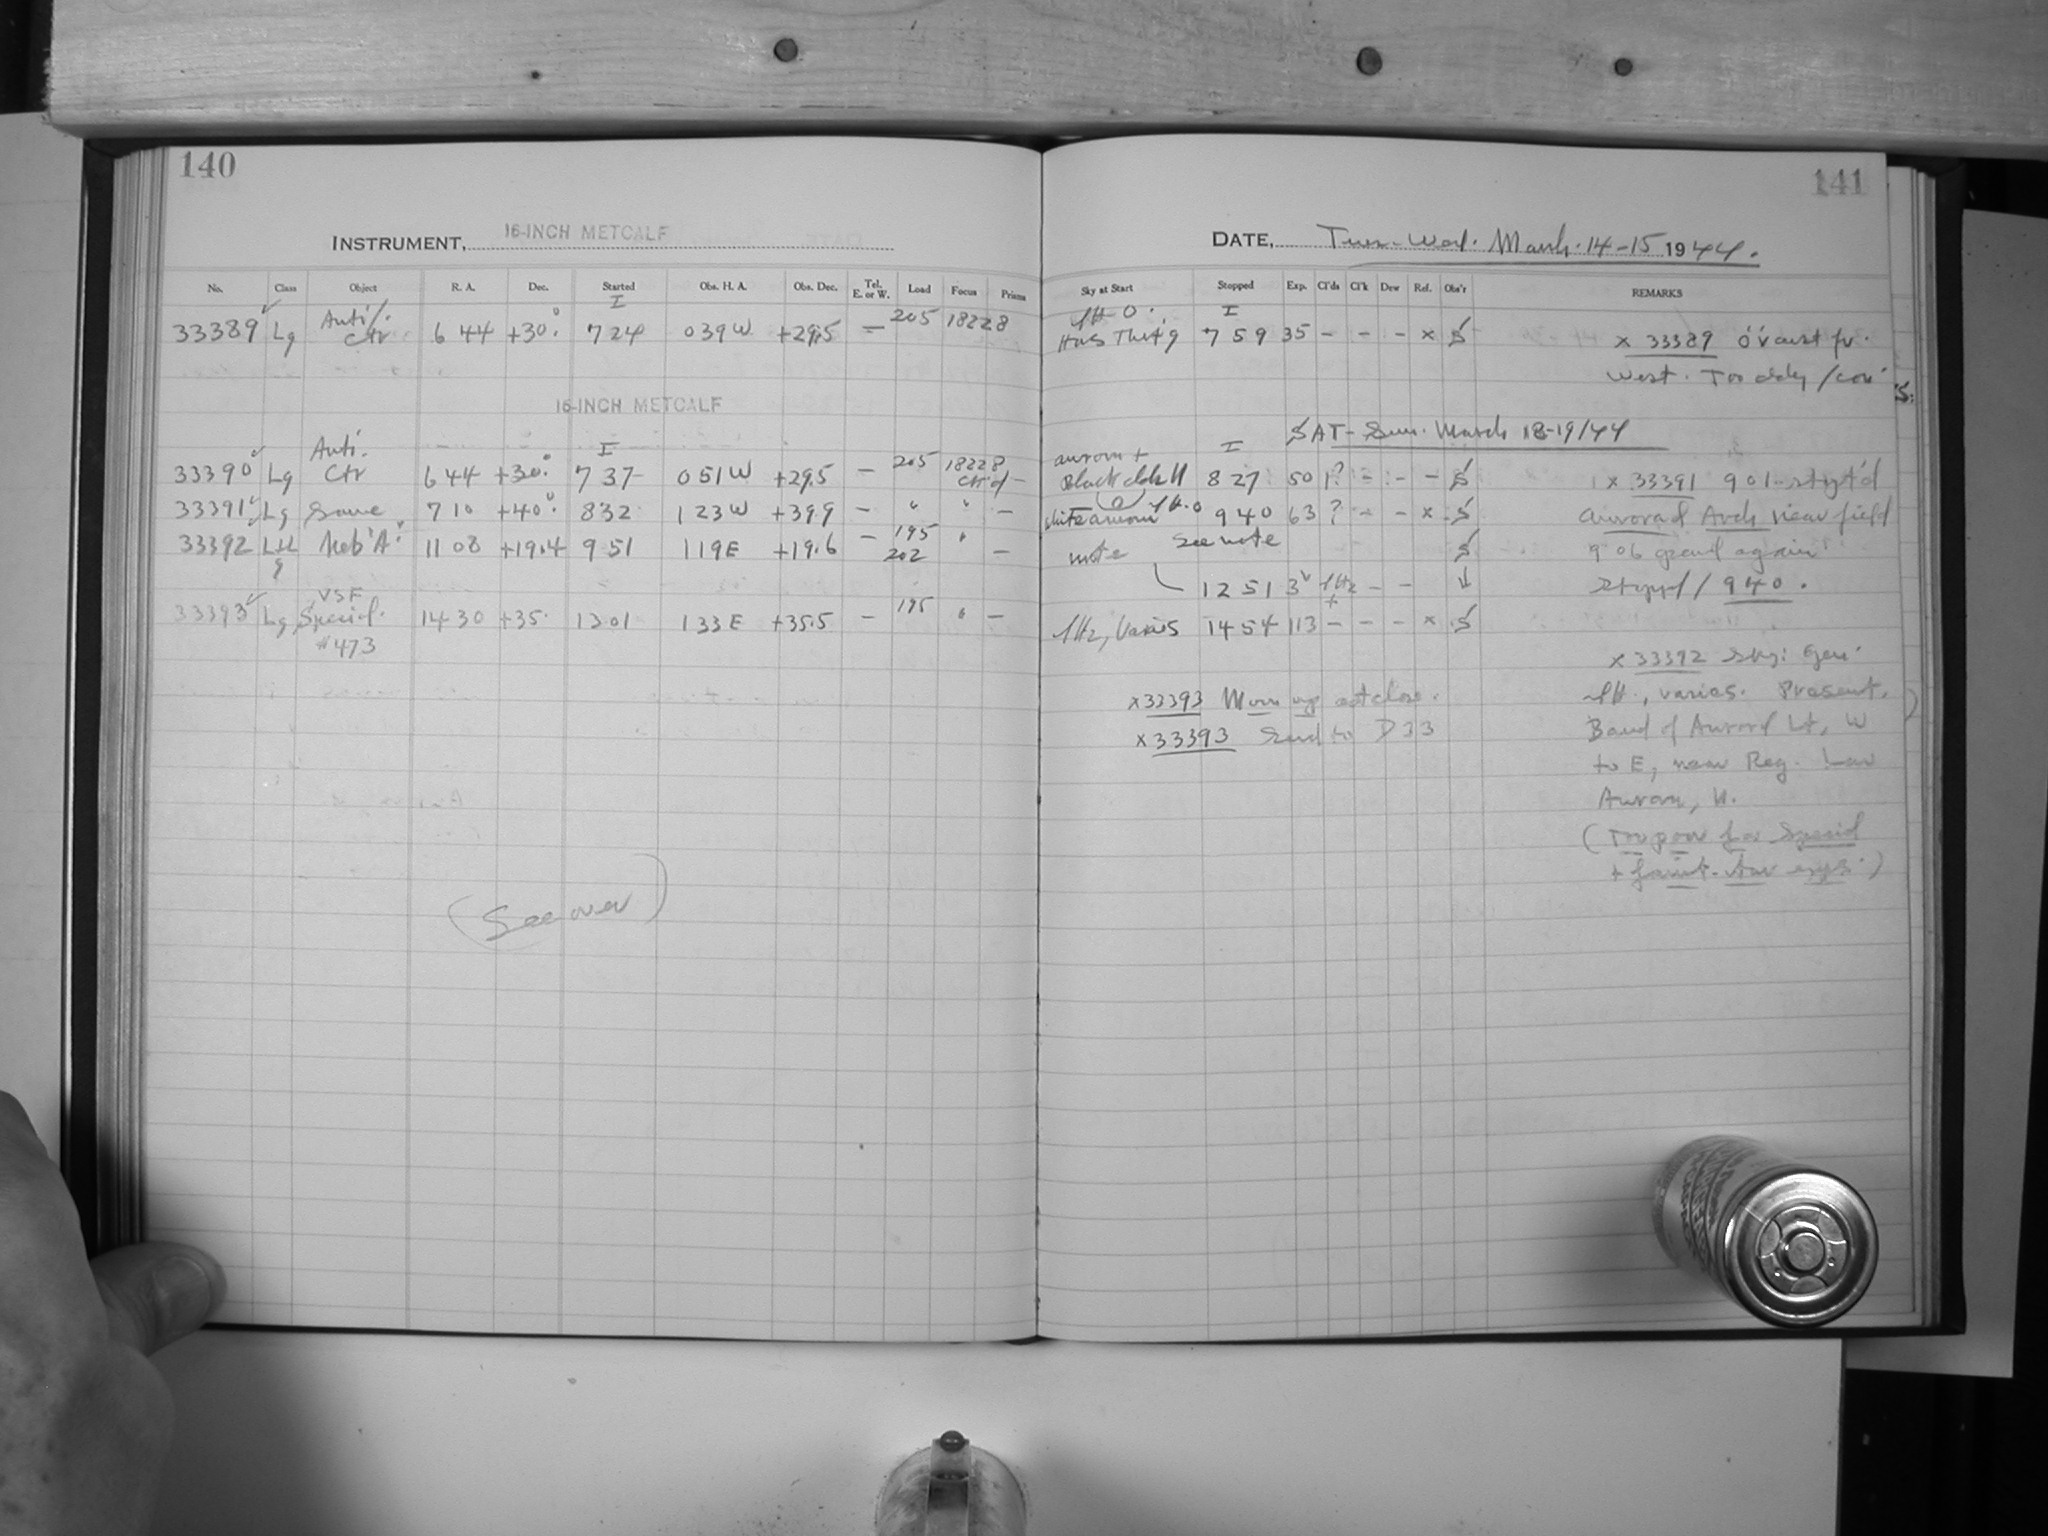 140
INSTRUMENT, 16-INCH METCALF
No. Class Object R. A. Dec. Started Obs. H. A. Obs. Dec. Tel. E. or W. Load Focus Prism
I
33389 Lg Anti Ctr 6 44 +30° 7 24 0 39 W +29.5 — 205 18228
16-INCH METCALF
I
33390 Lg Anti. Ctr 6 44 +30° 7 37 0 51 W +29.5 — 205 18228
33391 Lg Same 7 10 +40° 8 32 1 23 W +39.9 — " " —
33392 Neb "A" 11 08 +19.4 9 51 1 19 E +19.6 — 195 202 " —
33393 Lg VSF Special #473 14 30 +35 1301 1 33 E +35.5 — 195 " —
(See over)
141
DATE, Tues-Wed. March 14-15 1944.
Sky at Start Stopped Exp. Cl'ds Cl'k Dew Ref. Obs'r REMARKS
I
7 59 35 – – – x S
x 33389
West. Too cldy
SAT-Sun. March 18-19/44
I
aurora +
8 27 50 1? – – – S
x 33391 9 01
9 40 63 ? – – x S
Auroral Arch near field
note See note S
9 06 again
12 51
Stopp'd / 9 40.
14 54 113 – – – x S
x 33392 Sky: Gen'
varies. Present,
x 33393 Moon up at close.
Band of Auroral Lt, W
x 33393 Send to D33
to E, near Reg. Low
Aurora, N.
(Too poor for Special
+ faint-star exps.)